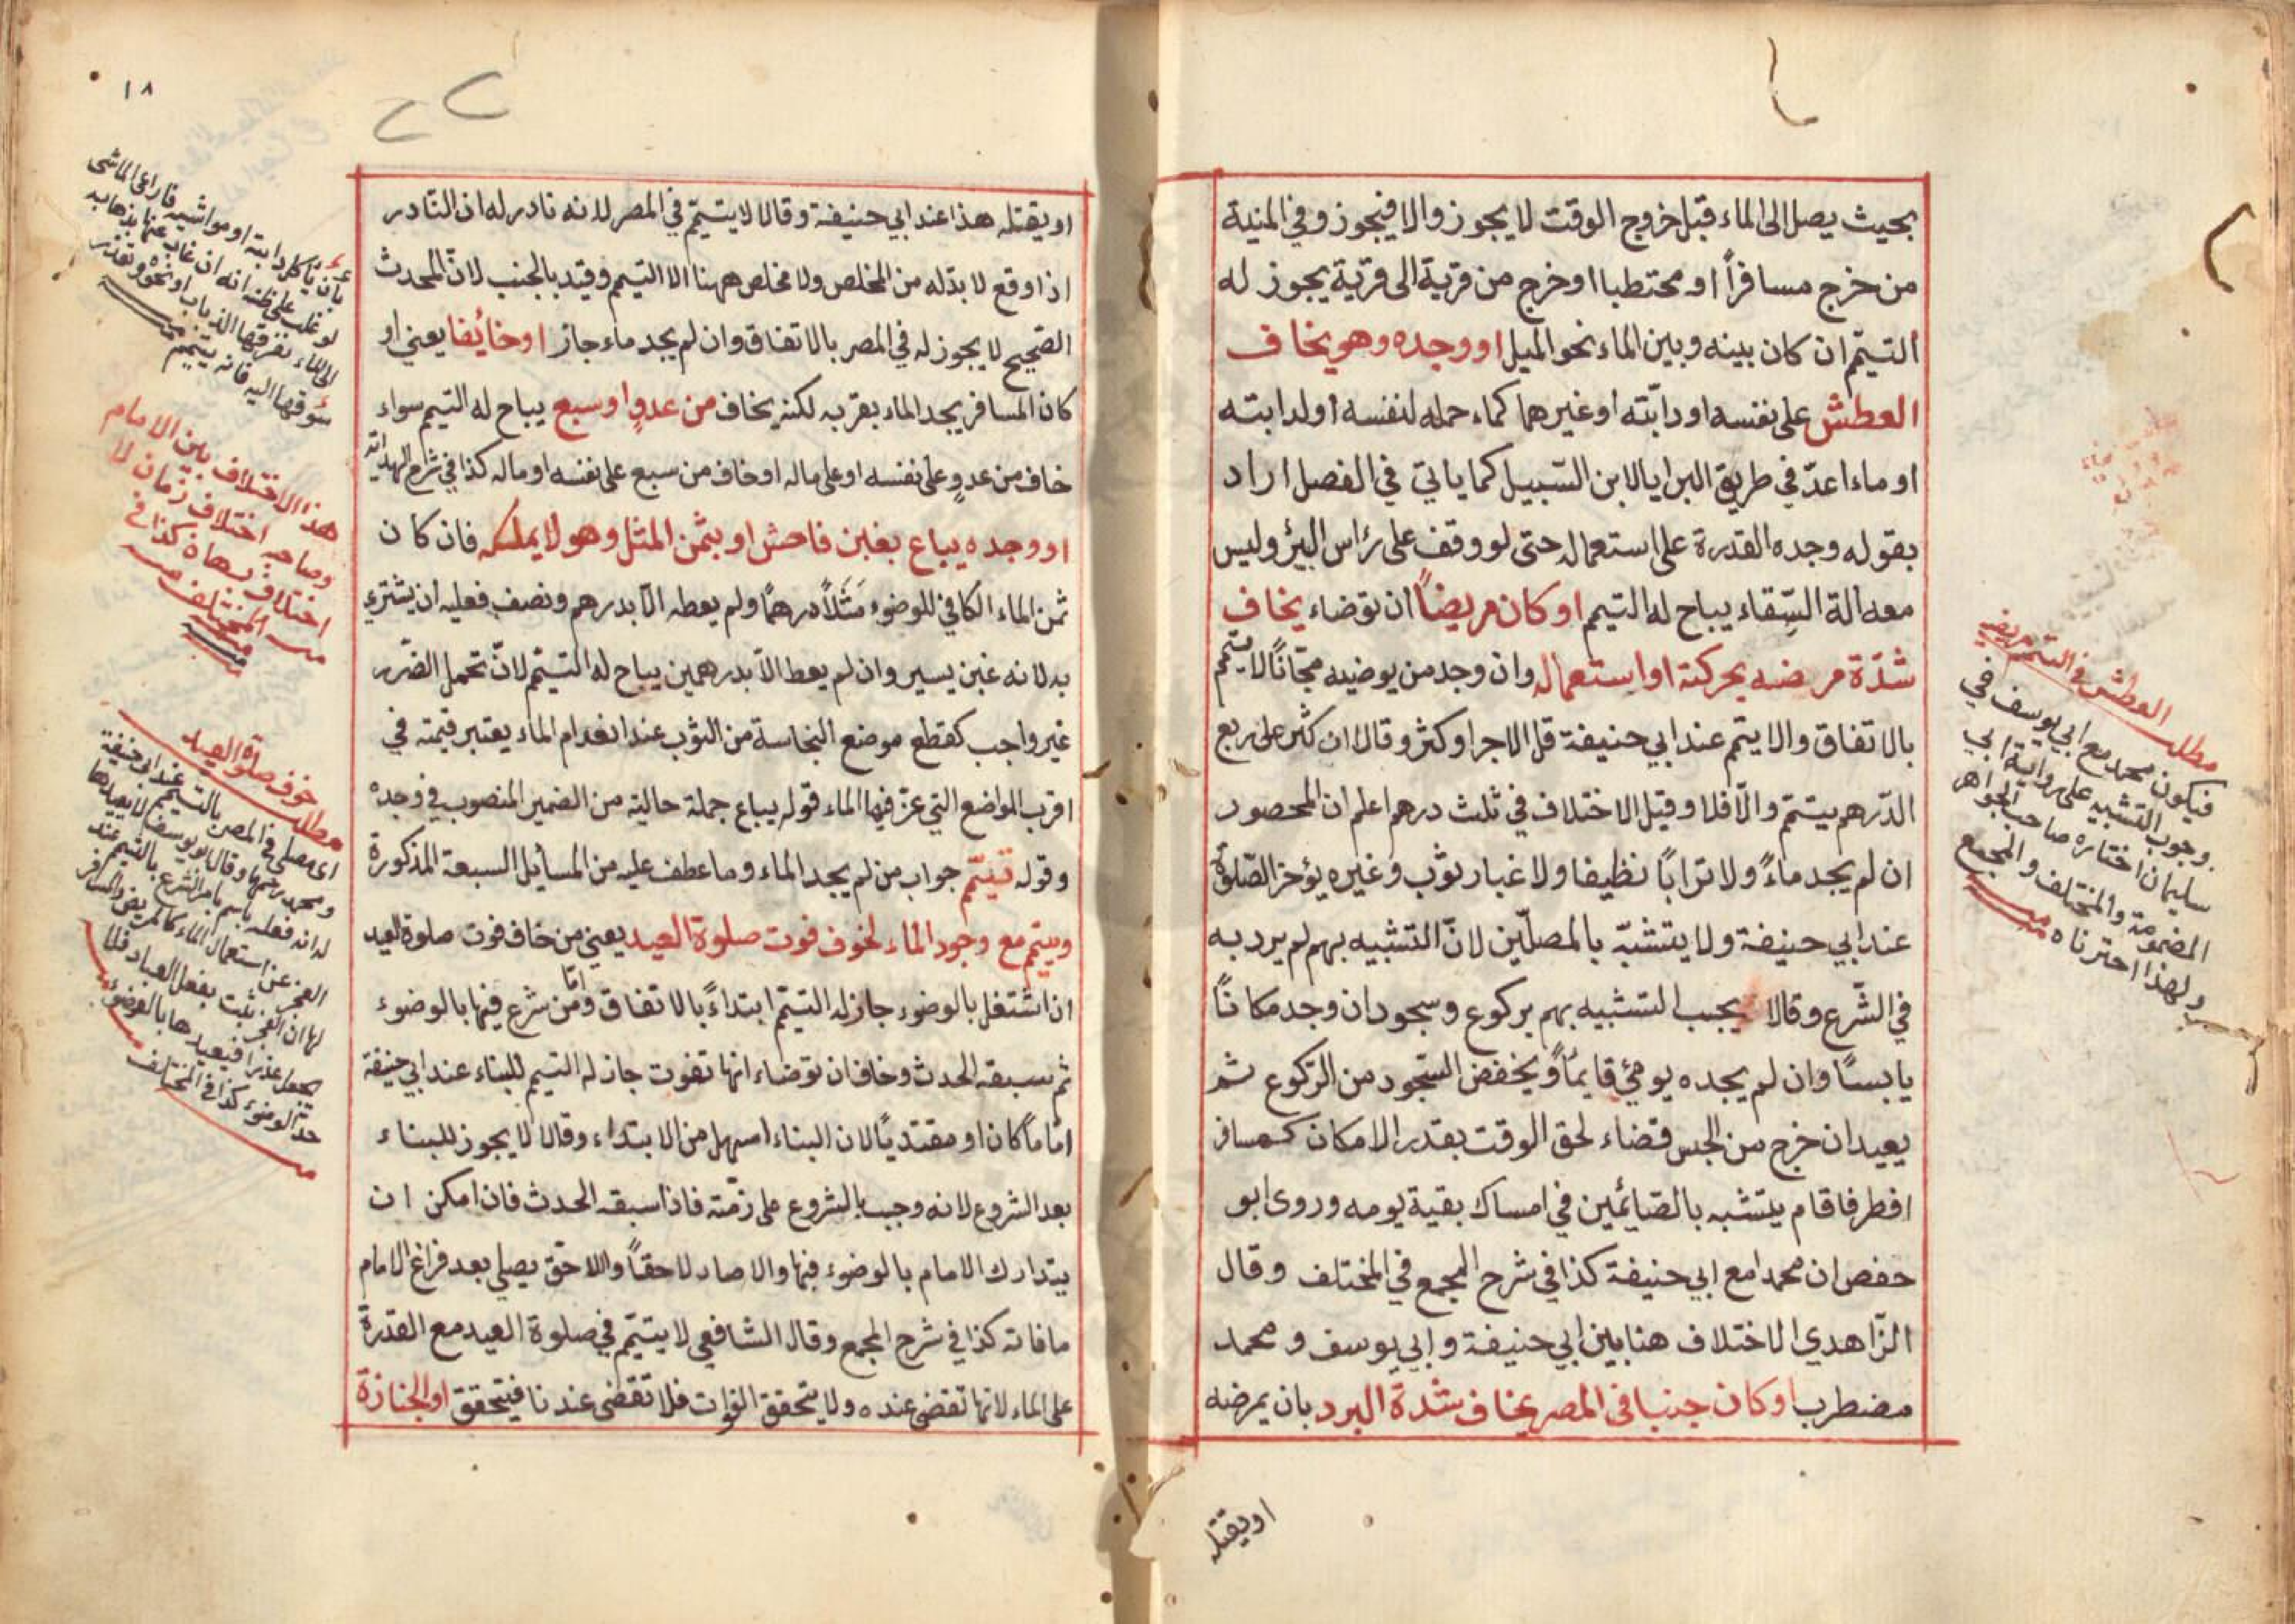 بحيث يصل الى الماء قبل خروج الوقت لا يجوز والا فيجوز وفي المنية
من خرج مسافراً او محتطبا او خرج من قرية الى قرية يجوز له
التيمّم ان كان بينه وبين الماء نحو الميل او وجده وهو يخاف
العطش على نفسه او دابّته او غيرهما كماء حمله لنفسه او لدابته
او ماء اعدّ في طريق البرايا لابن السّبيل كما ياتي في الفصل اراد
بقوله وجده القدرة على استعماله حتى لو وقف على رٔاس البئر وليس
معه الة السِّقاء يباح له التيمم او كان مريضاً ان توضاء يخاف
شدّة مرضه بحركته او استعماله وان وجد من يوضيه مجّاناً لا يتيمّم
بالاتفاق والا يتمم عند ابي حنيفة قل الاجر او كثر وقالا ان كثر على ربع
الدّرهم يتيمّم والّا فلا وقيل الاختلاف في ثلث درهم اعلم ان المحصور
ان لم يجد ماءً ولا تراباً نظيفا ولا غبار ثوب وغيره يؤخر الصّلوة
عند ابي حنيفة ولا يتشبّه بالمصلّين لانّ التشبيه بهم لم يرد به
في الشّرع وقالا يجب التشبيه بهم بركوع وسجود ان وجد مكاناً
يابسًا وان لم يجده يومئ قايماً ويخفض السّجود من الرّكوع ثم
يعيد ان خرج من الحبس قضاء لحق الوقت بقدر الامكان كمسافر
افطر فاقام يتشبه بالصّائمين في امساك بقية يومه وروى ابو
حفص ان محمدا مع ابي حنيفة كذا في شرح المجمع في المختلف وقال
الزّاهدي الاختلاف هنا بين ابي حنيفة وابي يوسف ومحمد
مضطرب او كان جنبا في المصر يخاف شدة البرد بان يمرضه
او يقتله
مطلب العطش في التيمم مريض
فيكون محمد مع ابي يوسف في
وجوب التشبيه على رواية ابي
سليمان اختاره صاحب الجواهر
المضمومة والمختلف والمجمع
ولهذا احترناه
١٨
او يقتله هذا عند ابي حنيفة وقالا لا يتيمّم في المصر لانه نادر له ان النّادر
اذا وقع لا بدّ له من المخلص ولا مخلص ههنا الا التيمم وقيد بالجنب لانّ المحدث
الصّحيح لا يجوز له في المصر بالاتفاق وان لم يجد ماء جاز او خائفا يعني او
كان المسافر يجد الماء بقربه لكنه يخاف من عدوٍ او سبع يباح له التيمم سواء
خاف من عدوٍ على نفسه او على ماله او خاف من سبع على نفسه او ماله كذا في شرح الهداية
او وجده يباع بغبن فاحش او بثمن المثل وهو لا يملكه فان كان
ثمن الماء الكافي للوضوء مَثَلاً درهمًا ولم يعطه الّا بدرهم ونصف فعليه ان يشتري
به لانه غبن يسير وان لم يعط الّا بدرهمين يباح له التيمّم لانّ تحمل الضّرر
غير واجب كقطع موضع النجاسة من الثوب عند انعدام الماء يعتبر قيمته في
اقرب المواضع التي عزّ فيها الماء قوله يباع جملة حالية من الضمير المنصوب في وجده
وقوله تيمّم جواب من لم يجد الماء وما عطف عليه من المسائل السبعة المذكورة
ويتمم مع وجود الماء لخوف فوت صلوة العيد يعني من خاف فوت صلوة العيد
ان اشتغل بالوضوء جاز له التيمّم ابتداءً بالاتفاق وامّا من شرع فيها بالوضوء
ثم سبقه الحدث وخاف ان توضاء انها تفوت جاز له التيمم للبناء عند ابي حنيفة
امّاماً كان او مقتديًا لان البناء اسهل من الابتداء وقالا لا يجوز للبناء
بعد الشروع لانه وجب بالشروع على ذمّته فاذا سبقه الحدث فان امكن ان
يتدارك الامام بالوضوء فبها والا صار لاحقاً واللاحق يصلي بعد فراغ الامام
ما فاته كذا في شرح المجمع وقال الشافعي لا يتيمّم في صلوة العيد مع القدرة
على الماء لانها تقضى عنده ولا يتحقق الفوات فلا تقضى عندنا فيتحقق او الجنازة
بان تاكل دابته او مواشيه فا راعى الماشى
لو غلب على ظنه انه ان غاب عنها بذهابه
الى الماء يفرقها الذياب او نحوه وتعذر
سوقها اليه فانه يتيمم
هذا الاختلاف بين الامام
وصاحبيه اختلاف زمان لا
اختلاف برهان كذا في
المختلف
مطلب خوف صلوة العيد
اي مصلى في المصر بالتيمم عند ابي حنيفة
ومحمد رحمهما وقال ابو يوسف لا يعيدها
لانه فعله باسم بامر الشرع بالتيمم عند
العجز عن استعمال الماء كالمريض والمسافر
لهما ان العجز يثبت بفعل العباد فلا
يجعل عذرا فيعيدها بالوضوء
كذا في المختلف